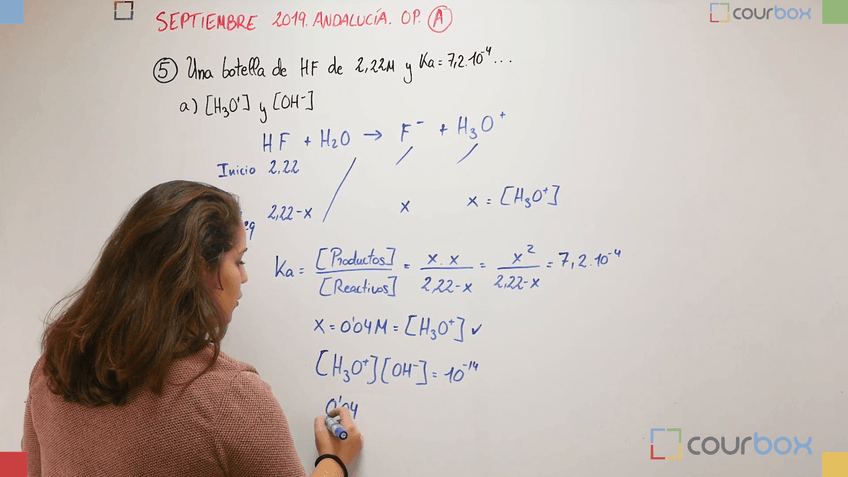 SEPTIEMBRE 2019. ANDALUCÍA. OP. A
courbox
5 Una botella de HF de 2,22M y Ka = 7,2·10⁻⁴...
a) [H₃O⁺] y [OH⁻]
HF + H₂O → F⁻ + H₃O⁺
Inicio 2,22
2,22-x x x = [H₃O⁺]
Ka = [Productos]/[Reactivos] = x·x/2,22-x = x²/2,22-x = 7,2·10⁻⁴
x = 0'04M = [H₃O⁺] ✓
[H₃O⁺][OH⁻] = 10⁻¹⁴
0'04
courbox